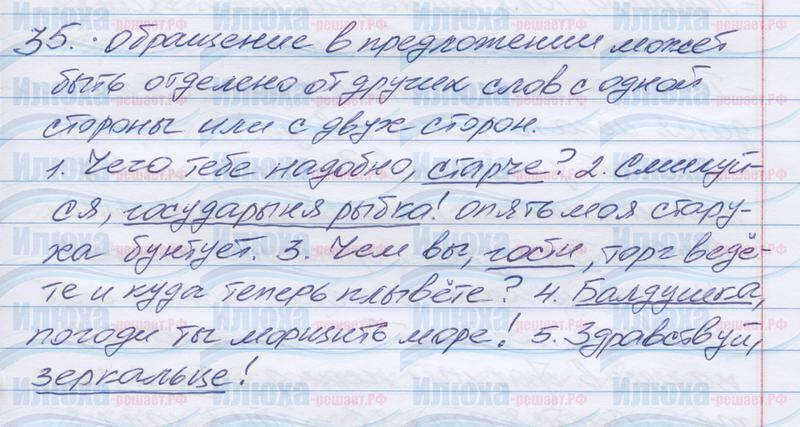 35. · Обращение в предложении может
быть отделено от других слов с одной
стороны или с двух сторон.
1. Чего тебе надобно, старче? 2. Смилуй-
ся, государыня рыбка! Опять моя стару-
ха бунтует. 3. Чем вы, гости, торг ведё-
те и куда теперь плывёте? 4. Балдушка,
погоди ты морщить море! 5. Здравствуй,
зеркальце!
Илюха-решает.РФ